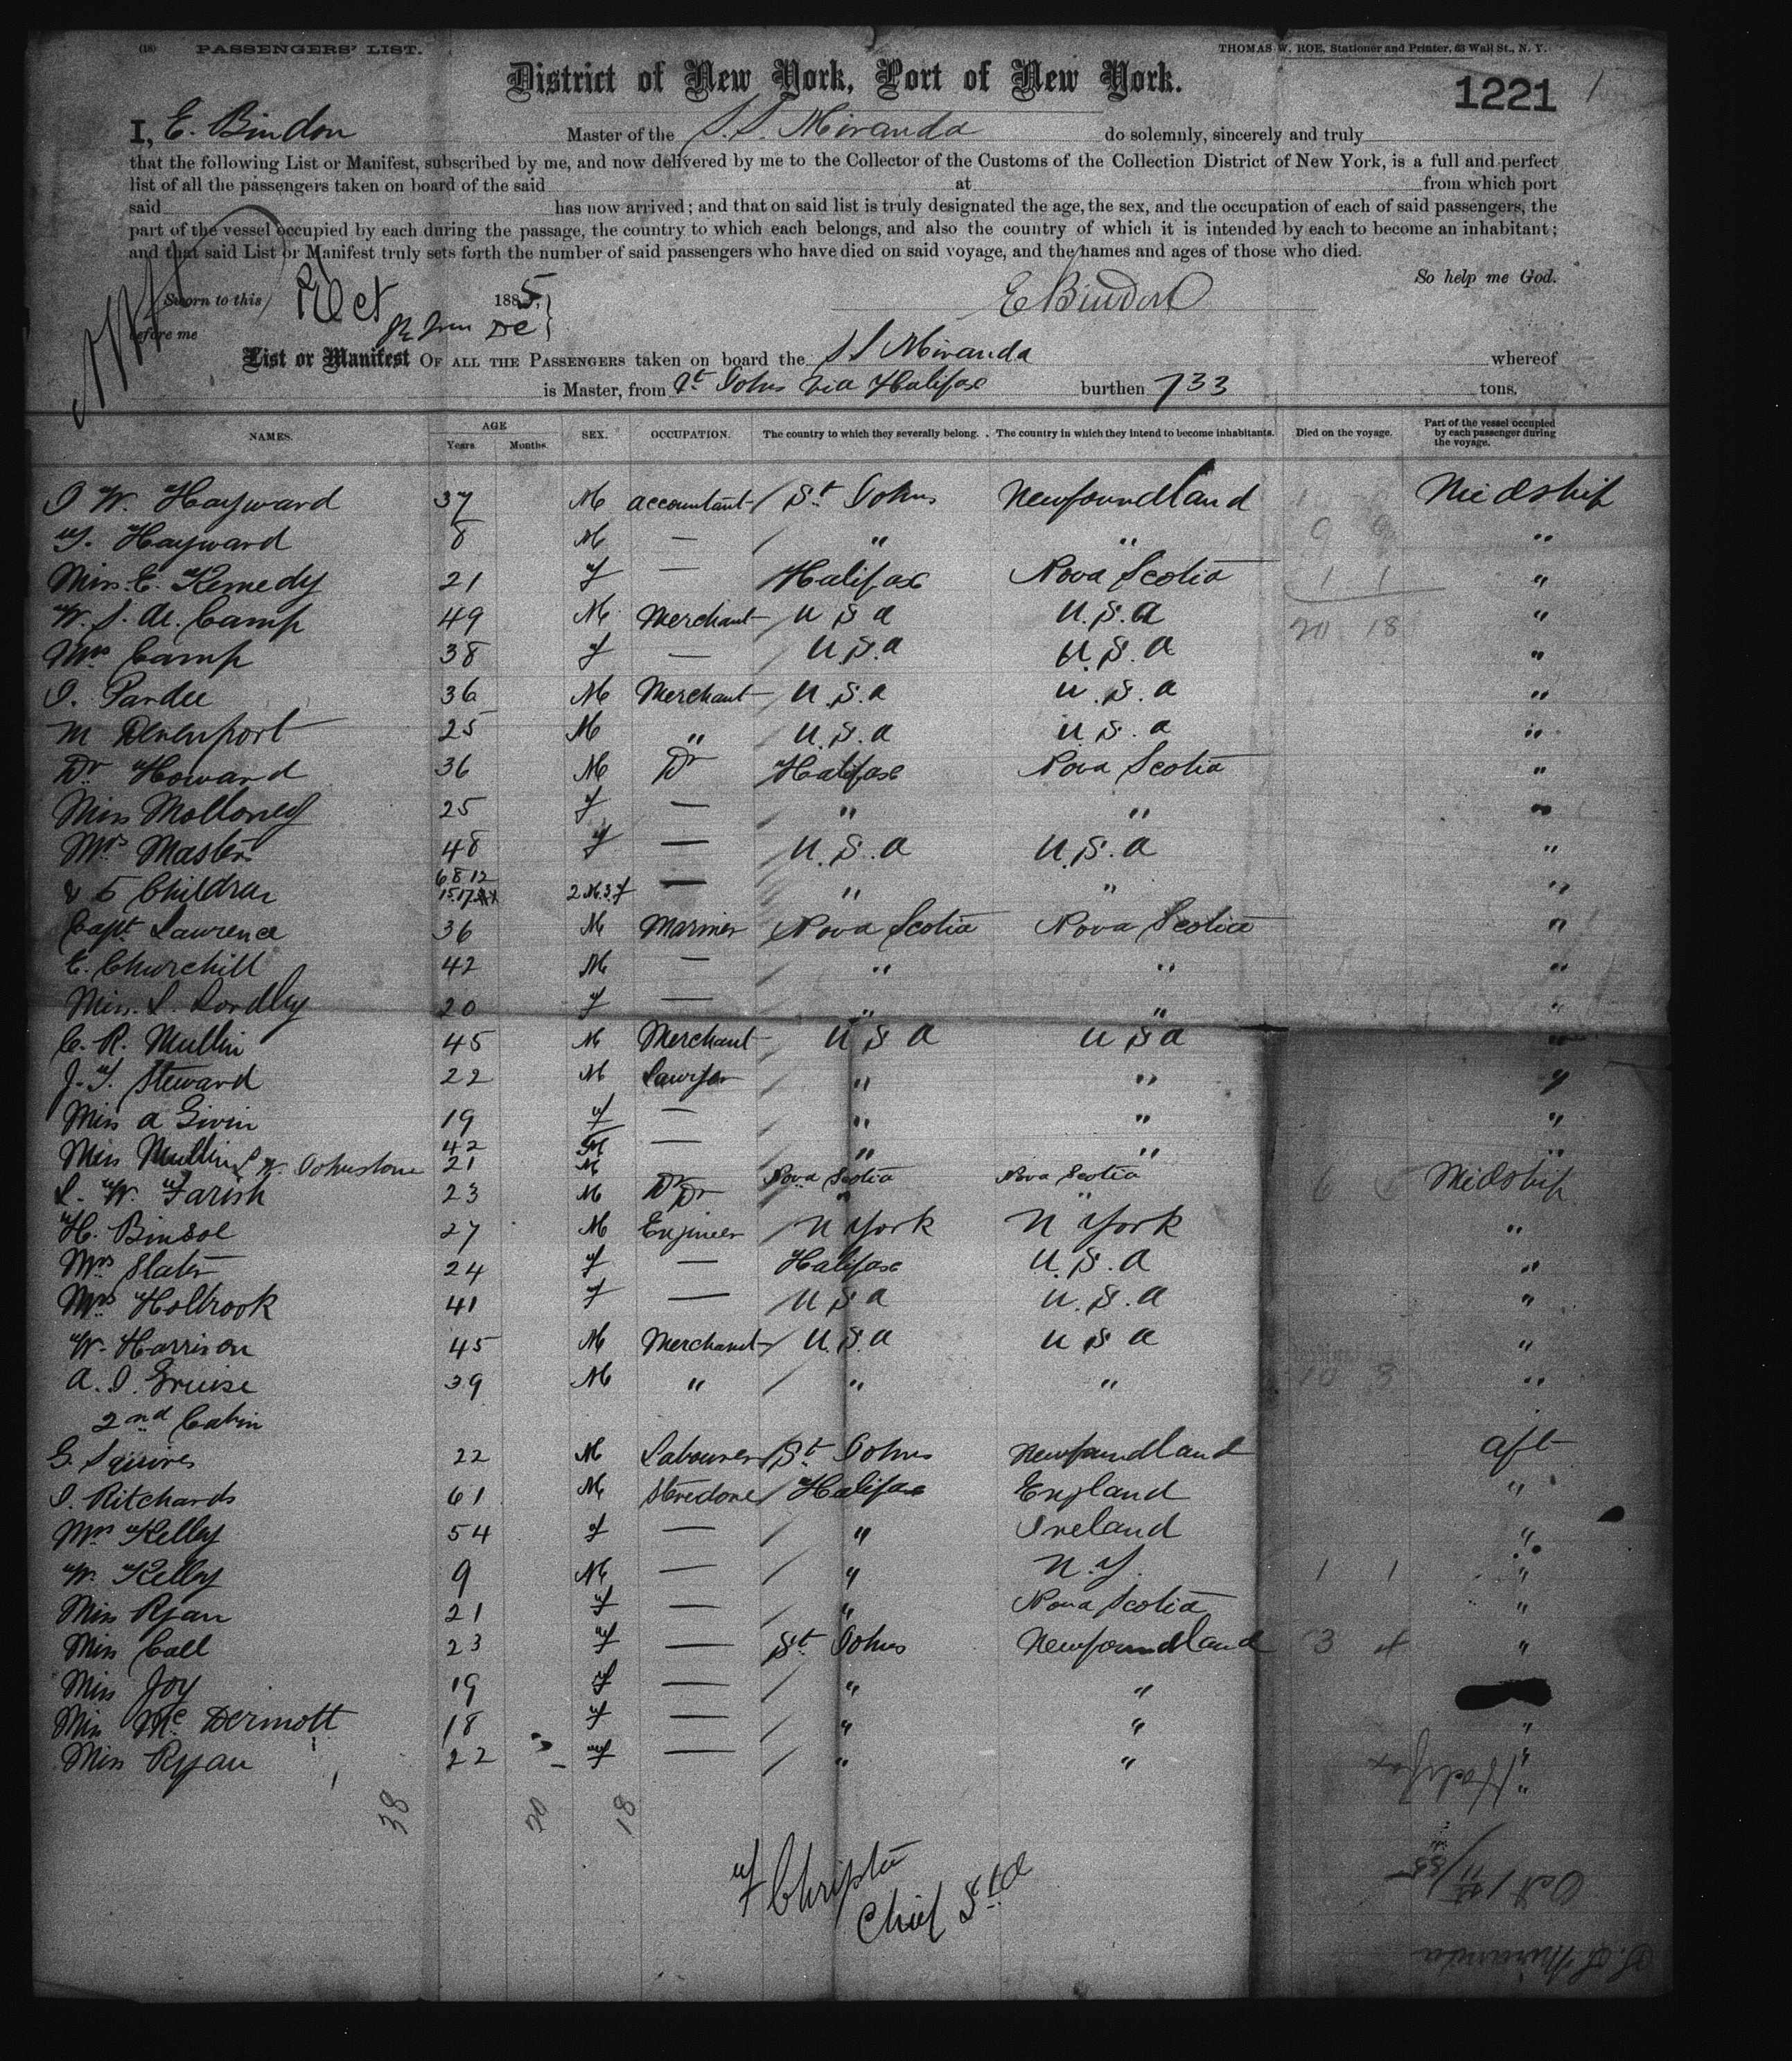 (18) PASSENGERS' LIST. THOMAS W. ROE, Stationer and Printer, 63 Wall St., N. Y.
District of New York, Port of New York. 1221 1
I, E. Bindon Master of the S. S. Miranda do solemnly, sincerely and truly
that the following List or Manifest, subscribed by me, and now delivered by me to the Collector of the Customs of the Collection District of New York, is a full and perfect
list of all the passengers taken on board of the said at from which port
said has now arrived; and that on said list is truly designated the age, the sex, and the occupation of each of said passengers, the
part of the vessel occupied by each during the passage, the country to which each belongs, and also the country of which it is intended by each to become an inhabitant;
and that said List or Manifest truly sets forth the number of said passengers who have died on said voyage, and the names and ages of those who died.
So help me God.
Sworn to this Oct 1885, E Bindon
before me
List or Manifest OF ALL THE PASSENGERS taken on board the S S Miranda whereof
is Master, from St Johns via Halifax burthen 733 tons.
NAMES. AGE Years. Months. SEX. OCCUPATION. The country to which they severally belong. The country in which they intend to become inhabitants. Died on the voyage. Part of the vessel occupied by each passenger during the voyage.
J W. Hayward 37 M accountant St Johns Newfoundland Midship
F. Hayward 8 M — " " "
Miss E. Kennedy 21 f — Halifax Nova Scotia "
W. S. M. Camp 49 M Merchant U S a U.S.a "
Mrs Camp 38 f — U.S.a U.S.a "
J. Pardee 36 M Merchant U.S.a U.S.a "
M Devenport 25 M " U.S.a U.S.a "
Dr Howard 36 M Dr Halifax Nova Scotia "
Miss Molloney 25 f — " " "
Mrs Masters 48 f — U.S.a U.S.a "
& 5 Children 6 8 12 15 17 2 M. 3. f — " " "
Capt Lawrence 36 M Mariner Nova Scotia Nova Scotia "
E. Churchill 42 M — " " "
Miss. L. Lordly 20 f — " " "
C. R. Mullin 45 M Merchant U S a U S a "
J. F. Steward 22 M Lawyer " " "
Miss a Givin 19 f — " " "
Miss Mullin 42 — " " "
L W. Johnstone 21 M Dr Nova Scotia Nova Scotia Midship
L. W. Farish 23 M Dr " "
H. Binsol 27 M Engineer N York N York "
Mrs Slater 24 f — Halifax U.S.a "
Mrs Holbrook 41 f — U S a U.S.a "
W. Harrison 45 M Merchant U.S.a U S a "
A. J. Gruise 39 M " " " "
2nd Cabin
G. Squires 22 M Labourer St Johns Newfoundland aft
J. Ritchards 61 M Stevedore Halifax England "
Mrs Kelley 54 f — " Ireland "
W. Kelley 9 M — " N.Y. 1 1 "
Miss Ryan 21 f — " Nova Scotia "
Miss Call 23 f — St Johns Newfoundland 3 4 "
Miss Joy 19 f — " "
Miss Mc Dermott 18 f — " " "
Miss Ryan 22 f — " " "
38 20 18
Halifax
Chief Std
Oct 1st /85
S. S. Miranda